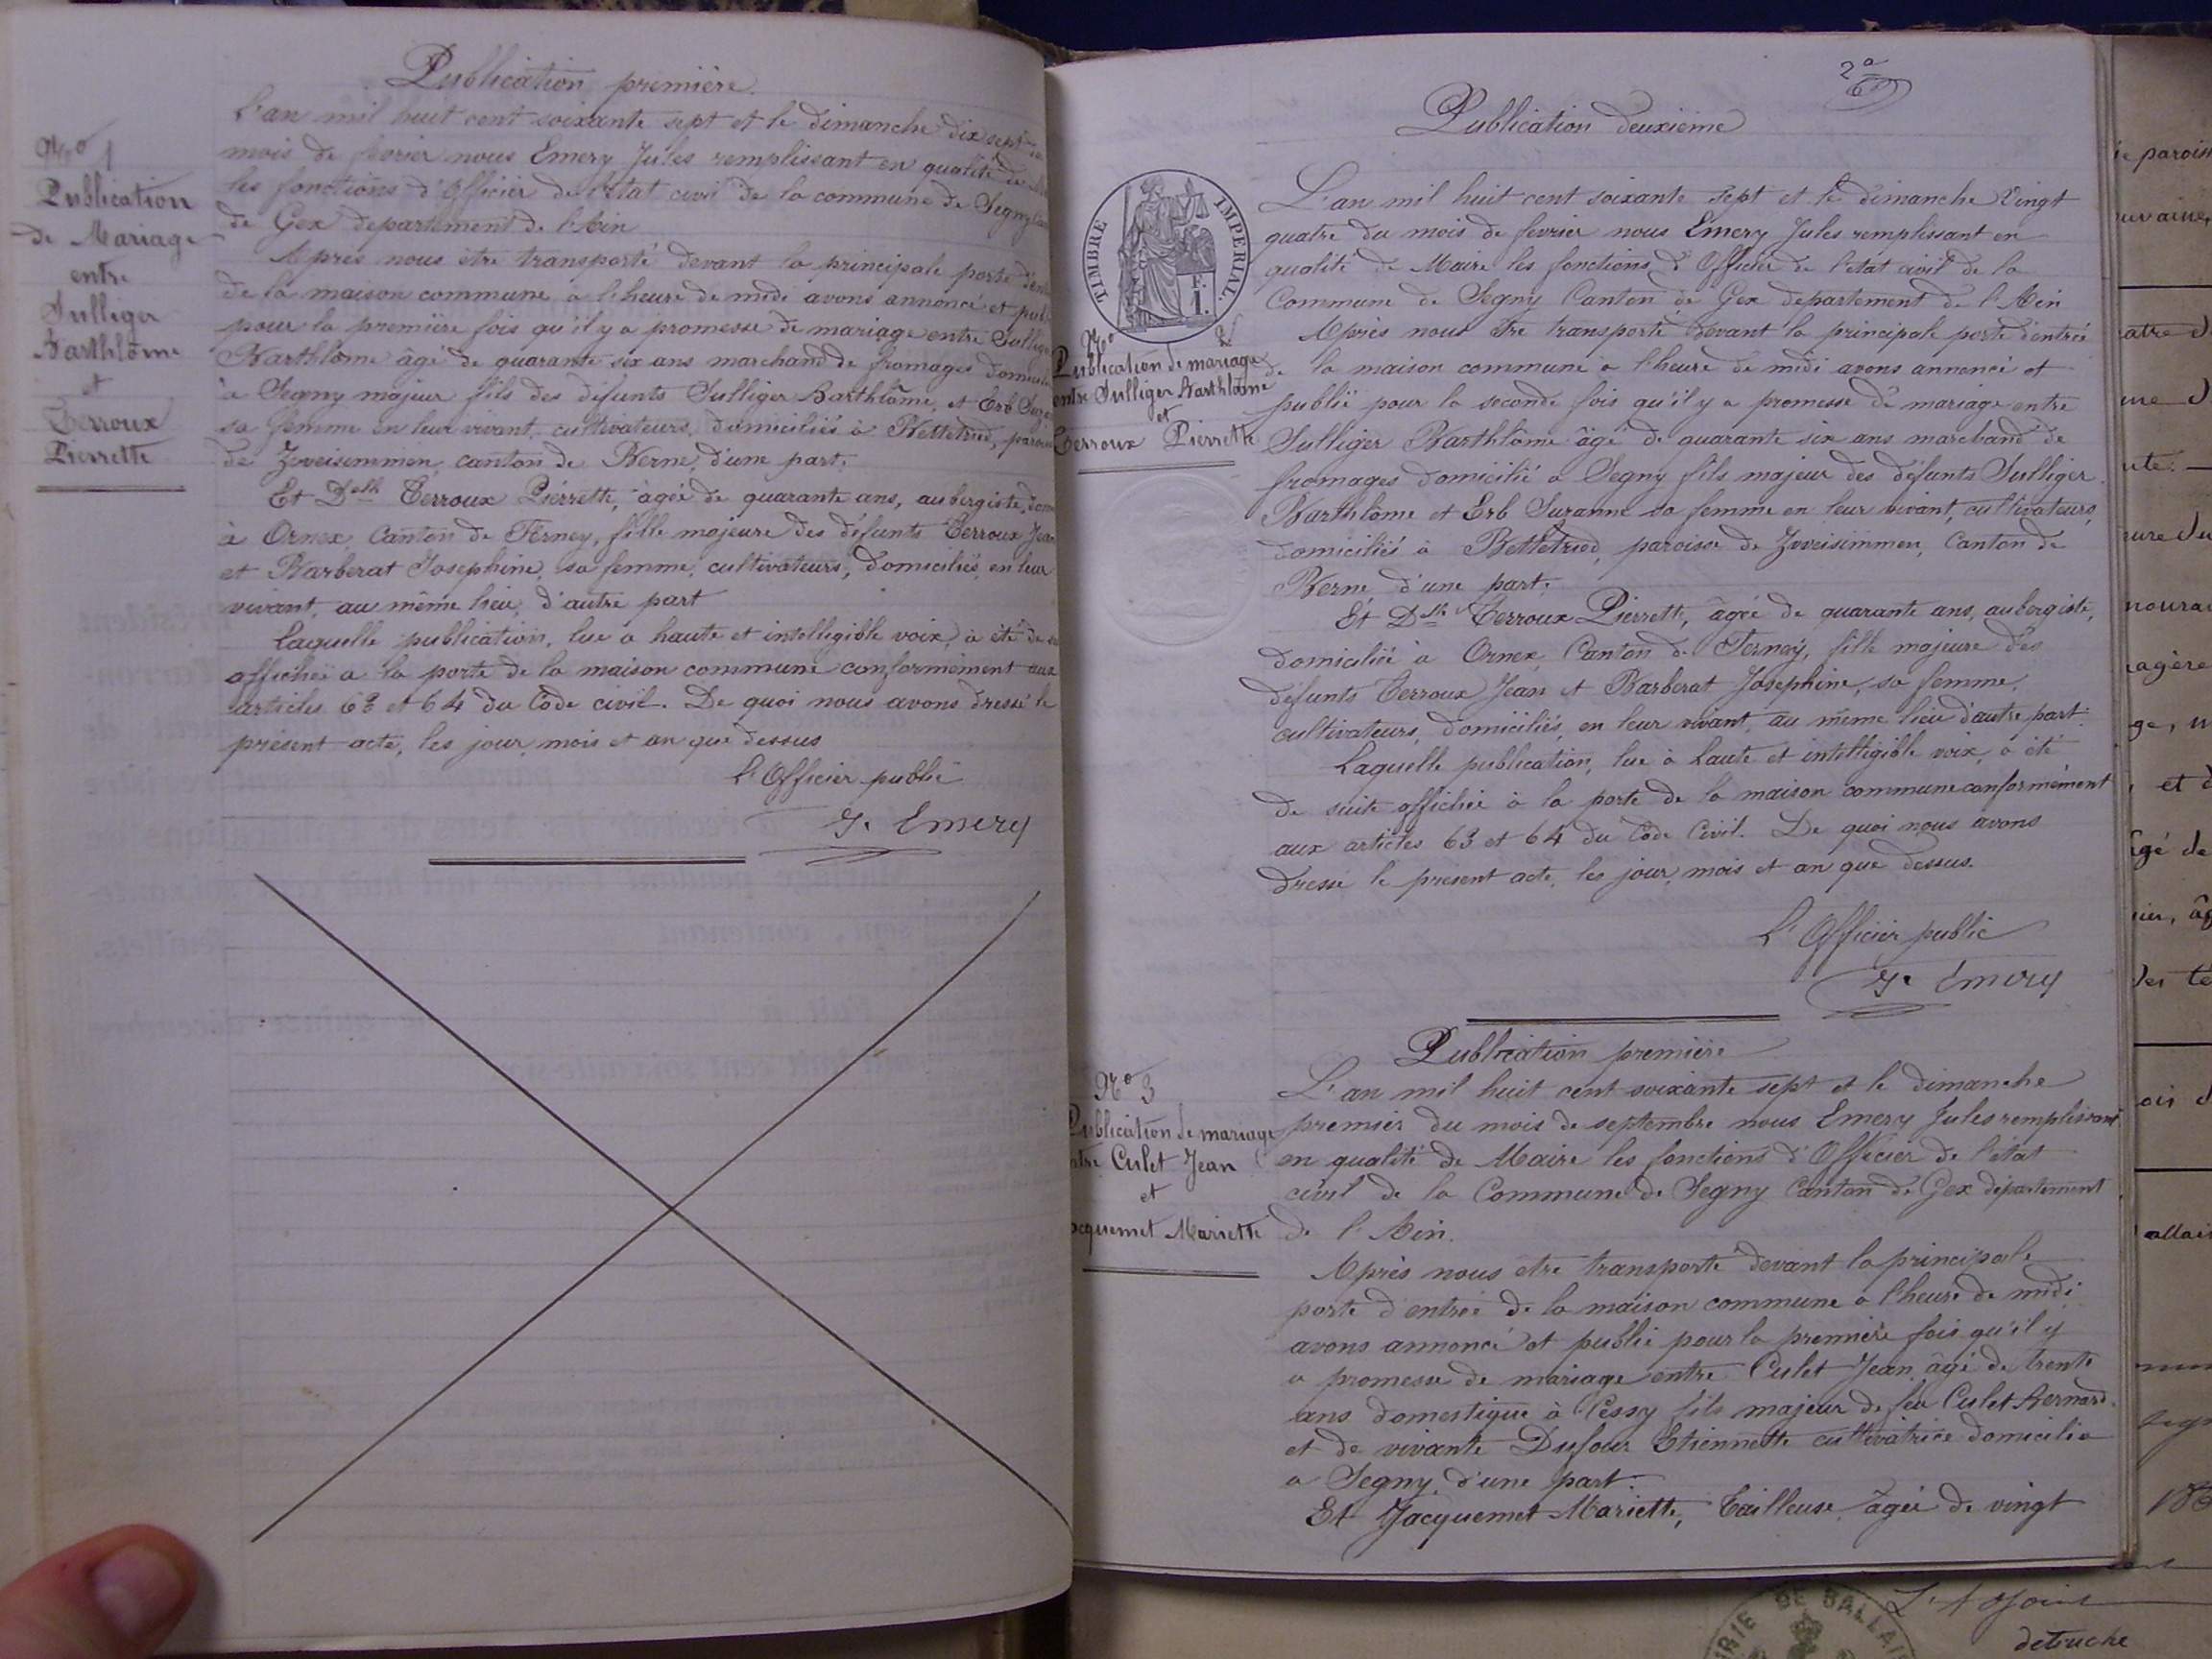 Publication première
L'an mil huit cent soixante sept et le dimanche dix sept du
mois de fevrier nous Emery Jules remplissant en qualité de
les fonctions d'Officier de l'état civil de la commune de Segny
de Gex departement de l'Ain
Après nous être transporté devant la principale porte
de la maison commune à l'heure de midi avons annoncé et
pour la première fois qu'il y a promesse de mariage entre Sulliger
Barthlôme âgé de quarante six ans marchand de fromages
à Segny majeur fils des défunts Sulliger Barthlôme, et Erb
sa femme en leur vivant cultivateurs, domiciliés à Bettetried,
de Zweisimmen, canton de Berne, d'une part.
Et Delle Terroux Pierrette, âgée de quarante ans, aubergiste,
à Ornex, Canton de Ferney, fille majeure des défunts Terroux Jean
et Barberat Josephine, sa femme, cultivateurs, domiciliés, en leur
vivant, au même lieu, d'autre part
Laquelle publication, lue a haute et intelligible voix, a été de
affichée a la porte de la maison commune conformément aux
articles 63 et 64 du Code civil. De quoi nous avons dressé le
présent acte, les jour, mois et an que dessus
L'Officier public
J. Emery
No 1
Publication
de Mariage
entre
Sulliger
Barthlôme
et
Terroux
Pierrette
2e
Publication deuxième
TIMBRE IMPERIAL.
F.
1.
No 2
Publication de mariage
entre Sulliger Barthlôme
et
Terroux Pierrette
L'an mil huit cent soixante sept et le dimanche Vingt
quatre du mois de fevrier nous Emery Jules remplissant en
qualité de Maire les fonctions d'Officier de l'état civil de la
Commune de Segny Canton de Gex departement de l'Ain
Après nous être transporté devant la principale porte d'entrée
de la maison commune a l'heure de midi avons annoncé et
publié pour la seconde fois qu'il y a promesse de mariage entre
Sulliger Barthlôme âgé de quarante six ans marchand de
fromages domicilié a Segny fils majeur des défunts Sulliger
Barthlôme et Erb Suzanne sa femme en leur vivant, cultivateurs,
domiciliés à Bettetried, paroisse de Zweisimmen, Canton de
Berne, d'une part.
Et Delle Terroux Pierrette, âgée de quarante ans, aubergiste,
domiciliée à Ornex, Canton de Ferney, fille majeure des
défunts Terroux Jean et Barberat Josephine, sa femme,
cultivateurs, domiciliés, en leur vivant, au même lieu d'autre part.
Laquelle publication, lue à haute et intelligible voix, a été
de suite affichée à la porte de la maison commune conformément
aux articles 63 et 64 du Code Civil. De quoi nous avons
dressé le présent acte, les jour, mois et an que dessus.
L'Officier public
J. Emery
Publication première
No 3
Publication de mariage
entre Culet Jean
et
Jacquemet Mariette
L'an mil huit cent soixante sept et le dimanche
premier du mois de septembre nous Emery Jules remplissant
en qualité de Maire les fonctions d'Officier de l'état
civil de la Commune de Segny Canton de Gex département
de l'Ain.
Après nous être transporté devant la principale
porte d'entrée de la maison commune a l'heure de midi
avons annoncé et publié pour la première fois qu'il y
a promesse de mariage entre Culet Jean, âgé de trente
ans domestique à Cessy fils majeur de feu Culet Bernard
et de vivante Dufour Etiennette cultivatrice domicilie
a Segny, d'une part.
Et Jacquemet Mariette, Tailleuse, âgée de vingt
MAIRIE DE BALLAI
L'Adjoint
detruche